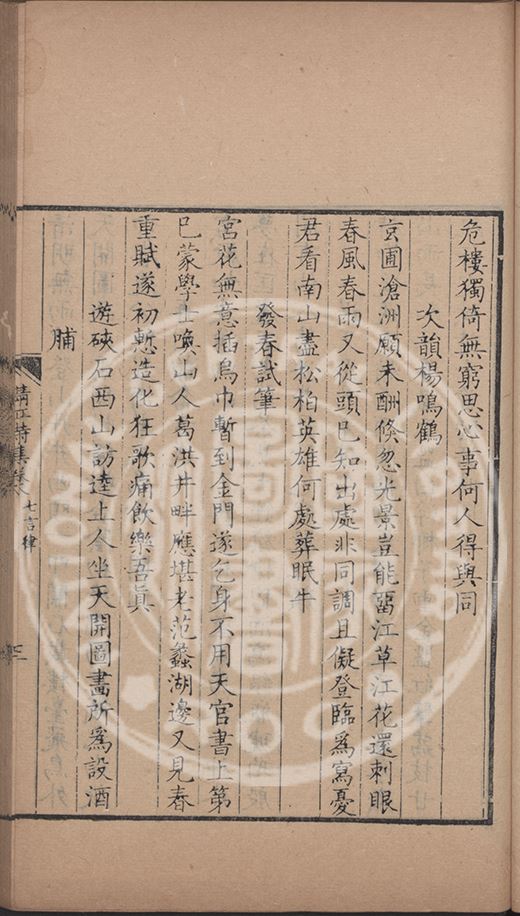 危樓獨倚無窮思心事何人得與同
次韻楊鳴鶴
玄圃滄洲願未酬倏忽光景豈能畱江草江花還刺眼
春風春雨又從頭已知出處非同調且儗登臨爲寫憂
君看南山盡松柏英雄何處葬眠牛
發春試筆
宮花無意插烏巾暫到金門遂乞身不用天官書上第
巳蒙學士喚山人葛洪井畔應堪老范蠡湖邊又見春
重賦遂初慙造化狂歌痛飲樂吾眞
遊硤石西山訪逵上人坐天開圖畫所爲設酒
脯
清江詩集
七言律